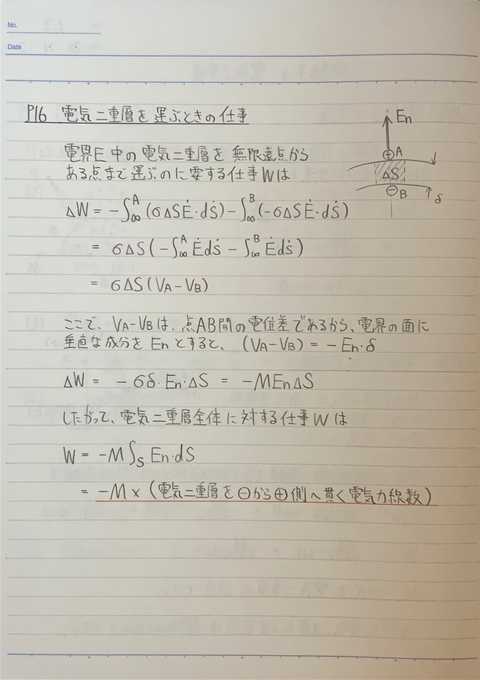 No.
Date
P16 電気二重層を運ぶときの仕事
En
A
ΔS
B
δ
電界E中の電気二重層を無限遠点から
ある点まで運ぶのに要する仕事Wは
ΔW = -∫∞^A (σΔSĖ・dṡ) - ∫∞^B (-σΔSĖ・dṡ)
= σΔS(-∫∞^A Ėdṡ - ∫∞^B Ėdṡ)
= σΔS(VA-VB)
ここで、VA-VBは、点AB間の電位差であるから、電界の面に
垂直な成分をEnとすると、(VA-VB) = -En・δ
ΔW = -σδ・En・ΔS = -MEnΔS
したがって、電気二重層全体に対する仕事Wは
W = -M∫s En・dS
= -M×(電気二重層を⊖から⊕側へ貫く電気力線数)